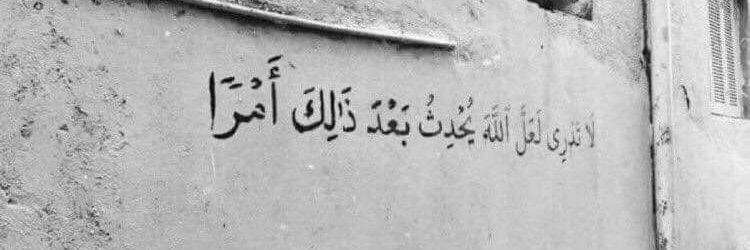 لَا تَدْرِى لَعَلَّ ٱللَّهَ يُحْدِثُ بَعْدَ ذَٰلِكَ أَمْرًا